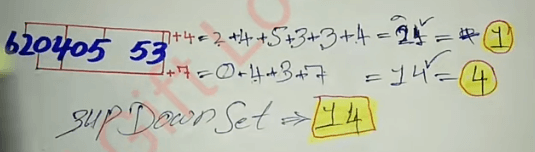 620405 53 +4 = 2+4+5+3+3+4 = 21 = 1
+7 = 0+4+3+7 = 14 = 4
3UP Down Set ⇒ 14
Gift Lo